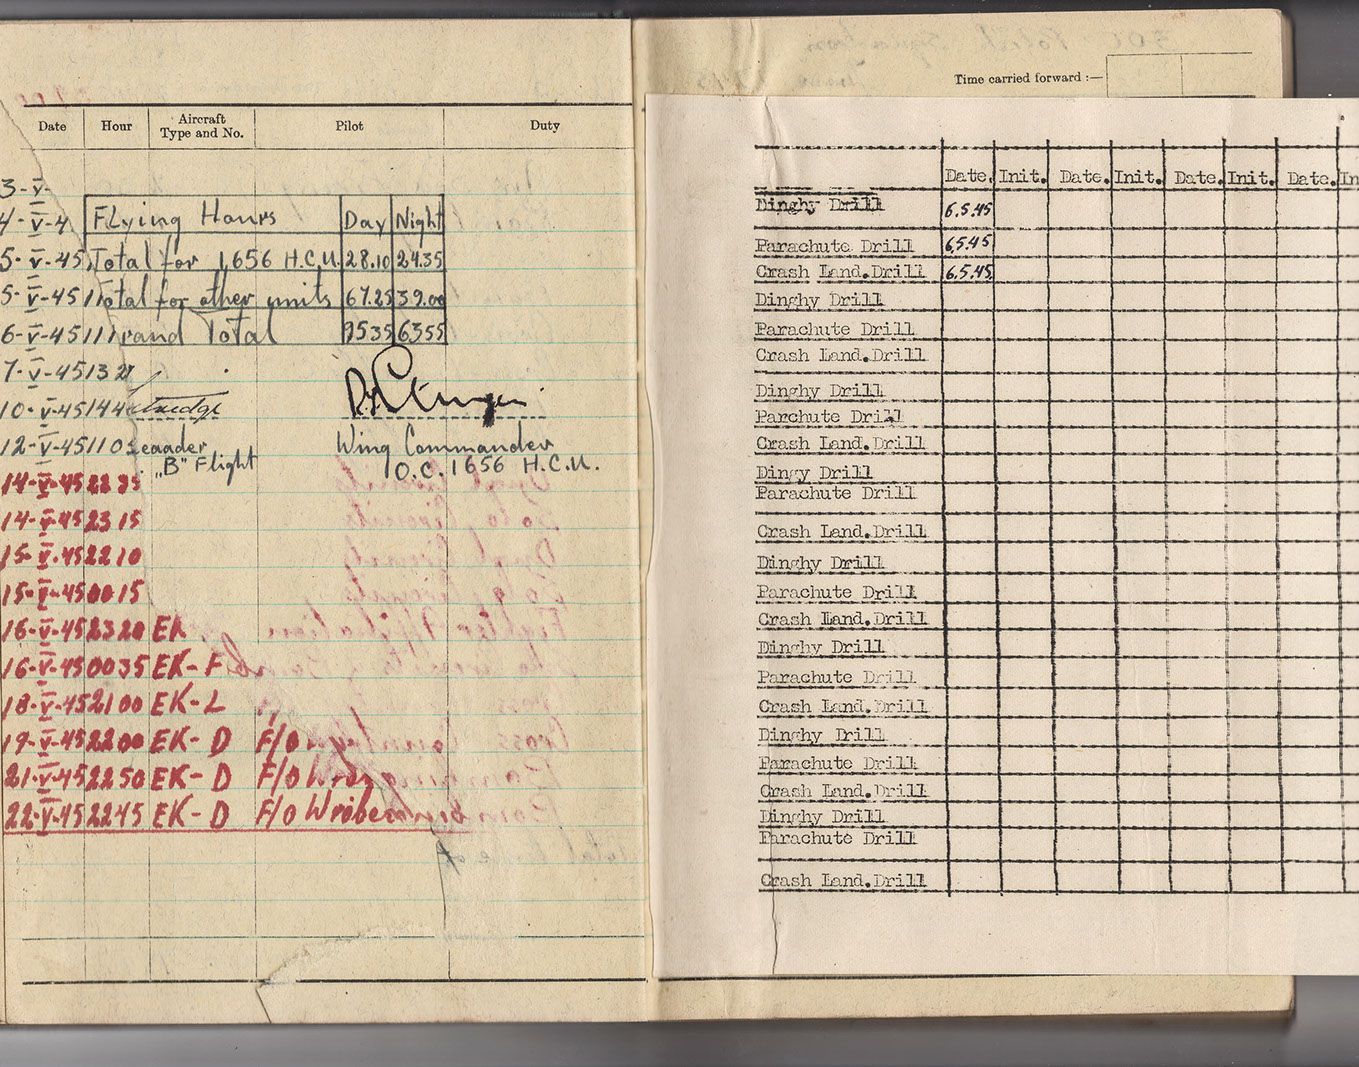 Date Hour Aircraft Type and No. Pilot Duty
3-V-
4-V-4
5-V-45
5-V-45 11
6-V-45 11
7-V-45 13
10-V-45 144
12-V-45 110
Flying Hours Day Night
Total for 1656 H.C.U. 28.10 24.35
Total for other units 67.25 39.00
Grand Total 9535 6355
Wing Commander
O.C. 1656 H.C.U.
Leaader
„B" Flight
14-V-45 22 35
14-V-45 23 15
15-V-45 22 10
15-V-45 00 15
16-V-45 23 20 EK
16-V-45 00 35 EK-F
18-V-45 21 00 EK-L
19-V-45 22 00 EK-D F/O
21-V-45 22 50 EK-D F/O
22-V-45 22 45 EK-D F/O
Time carried forward :—
Date. Init. Date. Init. Date. Init. Date. In
Dinghy Drill 6.5.45
Parachute Drill 6.5.45
Crash Land.Drill 6.5.45
Dinghy Drill
Parachute Drill
Crash Land.Drill
Dinghy Drill
Parchute Drill
Crash Land.Drill
Dingy Drill
Parachute Drill
Crash Land.Drill
Dinghy Drill
Parachute Drill
Crash Land.Drill
Dinghy Drill
Parachute Drill
Crash Land.Drill
Dinghy Drill
Parachute Drill
Crash Land.Drill
Dinghy Drill
Parachute Drill
Crash Land.Drill